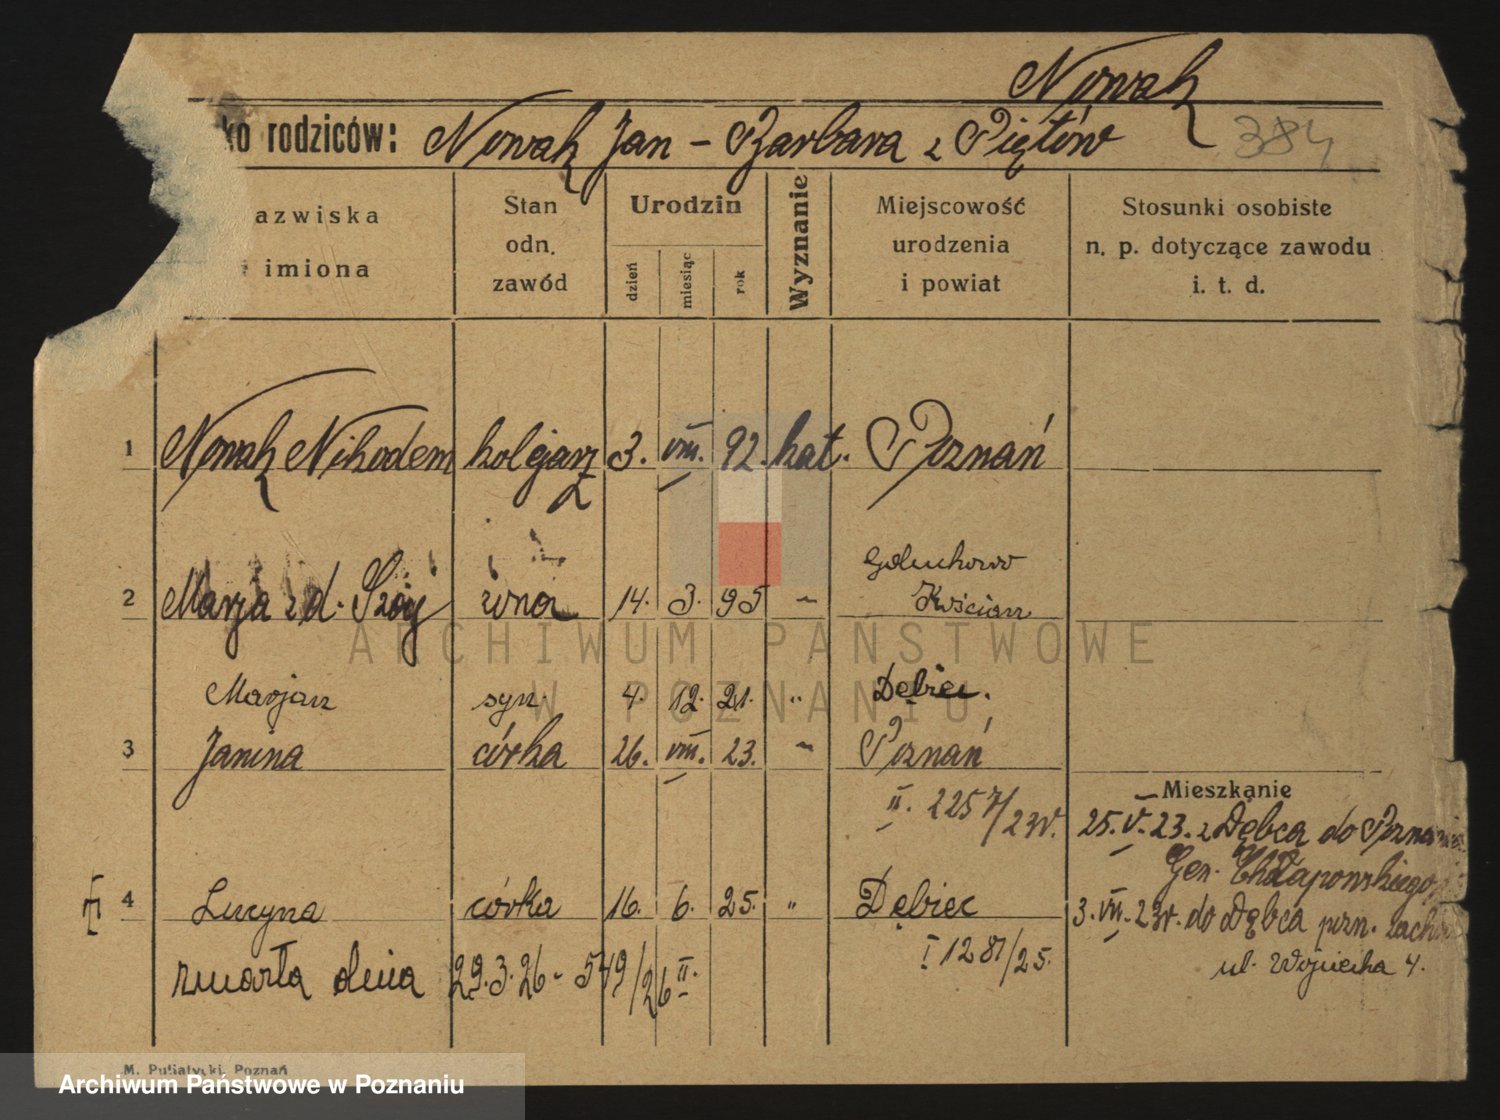 Nowak
ko rodziców: Nowak Jan – Barbara z Piętów 384
azwiska
i imiona
Stan
odn.
zawód
Urodzin
dzień
miesiąc
rok
Wyznanie
Miejscowość
urodzenia
i powiat
Stosunki osobiste
n. p. dotyczące zawodu
i. t. d.
1 Nowak Nikodem kolejarz 3. VIII. 92. kat. Poznań
2 Marja z d. żona 14. 3. 95 "
Kościan
Marjan syn 4. 12. 21. " Dębiec.
3 Janina córka 26. VIII. 23. " Poznań
II. 2257/23r.
Mieszkanie
25. V. 23. z Dębca do Poznania
Gen. Chłapowskiego
4 Lucyna córka 16. 6. 25. " Dębiec
3. VII. 23r. do Dębca pzn. zach.
I 1281/25.
ul. Wojciecha 4.
zmarła dnia 29.3.26 – 549/26 II.
M. Putiatycki, Poznań
ARCHIWUM PAŃSTWOWE
W POZNANIU
Archiwum Państwowe w Poznaniu